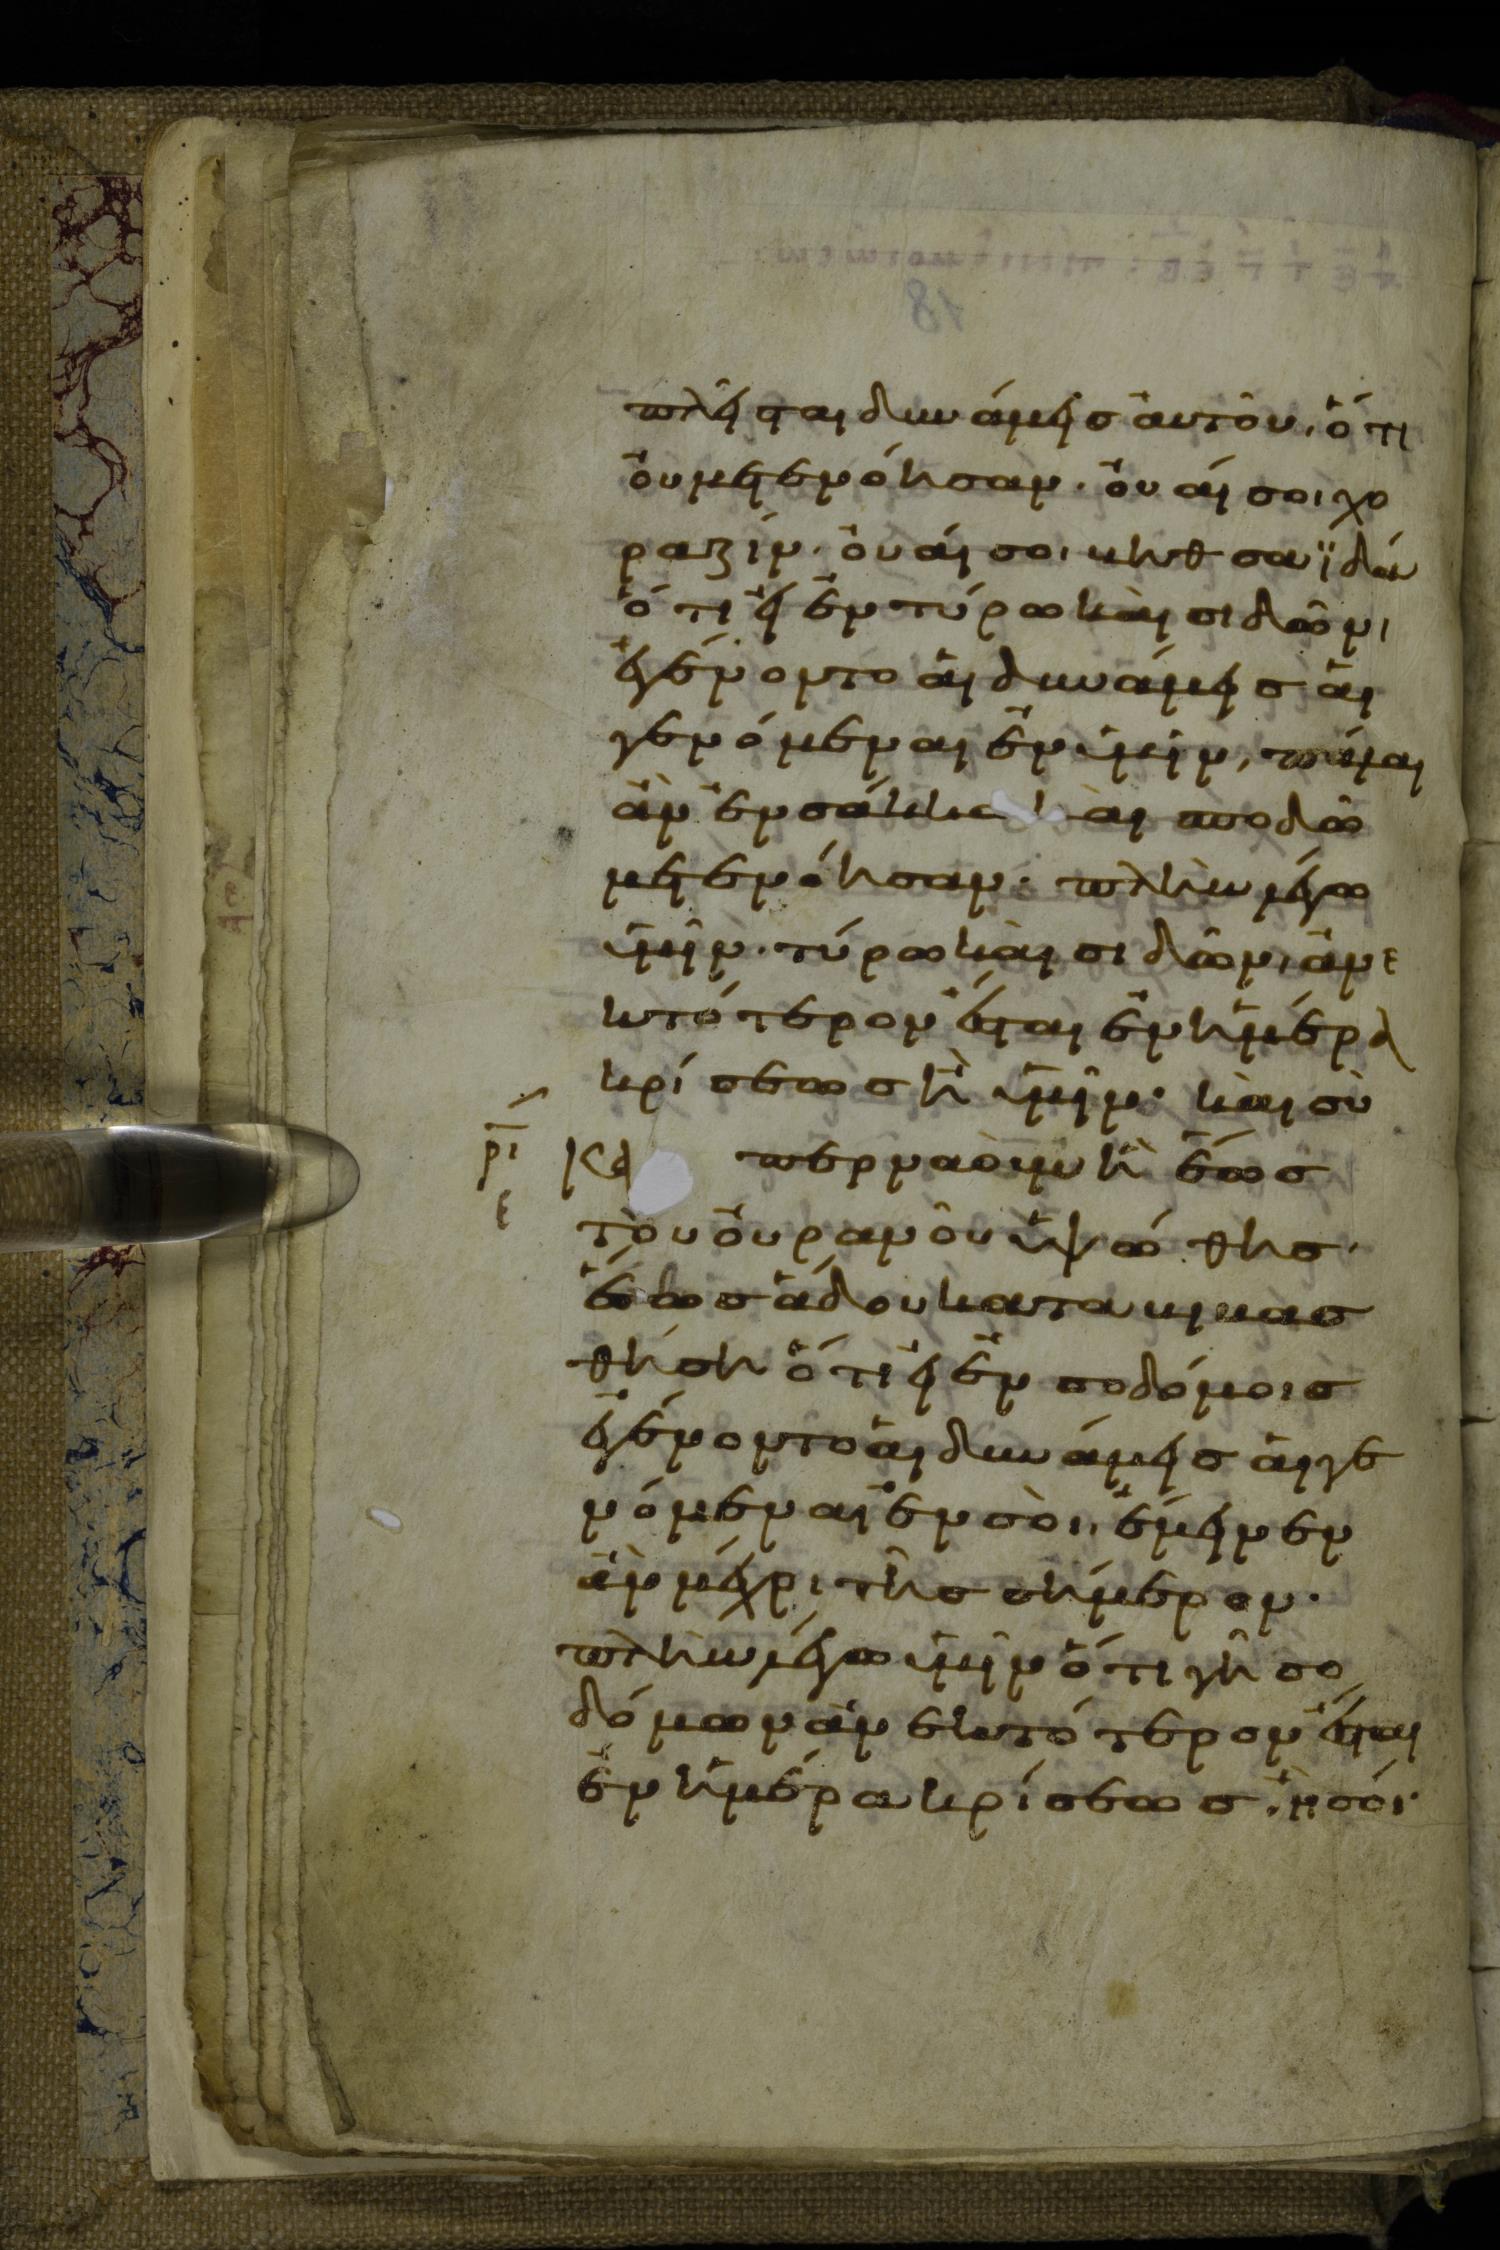 πλεῖσται δυνάμεις αὐτοῦ, ὅτι
οὐ μετενόησαν. οὐαί σοι χο
ραζίν. οὐαί σοι βηθσαϊδάν
ὅτι εἰ ἐν τύρω καὶ σιδῶνι
ἐγένοντο αἱ δυνάμεις αἱ
γενόμεναι ἐν ὑμῖν, πάλαι
ἂν ἐν σάκκω καὶ σποδῶ
μετενόησαν. πλὴν λέγω
ὑμῖν. τύρω καὶ σιδῶνι ἀνε
κτότερον ἔσται ἐν ἡμέρα
κρίσεως ἢ ὑμῖν. καὶ σὺ
κα περναοὺμ ἢ ἕως
τοῦ οὐρανοῦ ὑψώθης.
ἕως ἅδου καταβιβασ
θήση ὅτι εἰ ἐν σοδόμοις
ἐγένοντο αἱ δυνάμεις αἱ γε
νόμεναι ἐν σοὶ, ἔμεινεν
ἂν μέχρι τῆς σήμερον.
πλὴν λέγω ὑμῖν ὅτι γῆ σο
δόμων ἀνεκτότερον ἔσται
ἐν ἡμέρα κρίσεως. ἢ σοί.
ρι
ε
18